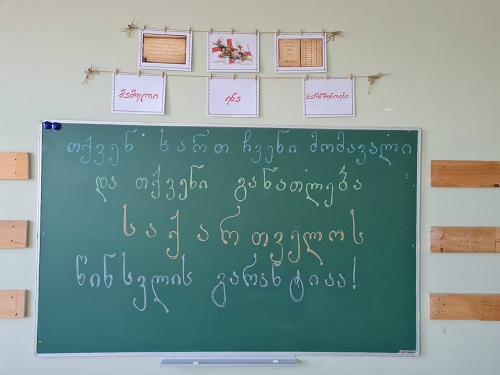 მამული
ენა
სარწმუნოება
თქვენ ხართ ჩვენი მომავალი
და თქვენი განათლება
საქართველოს
წინსვლის გარანტიაა!